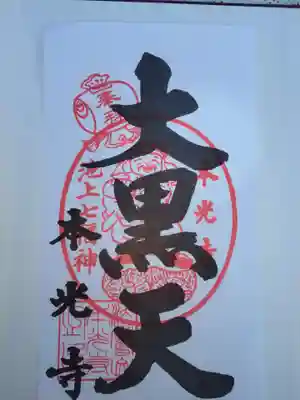 大黒天
本光寺
池上七福神
本光寺